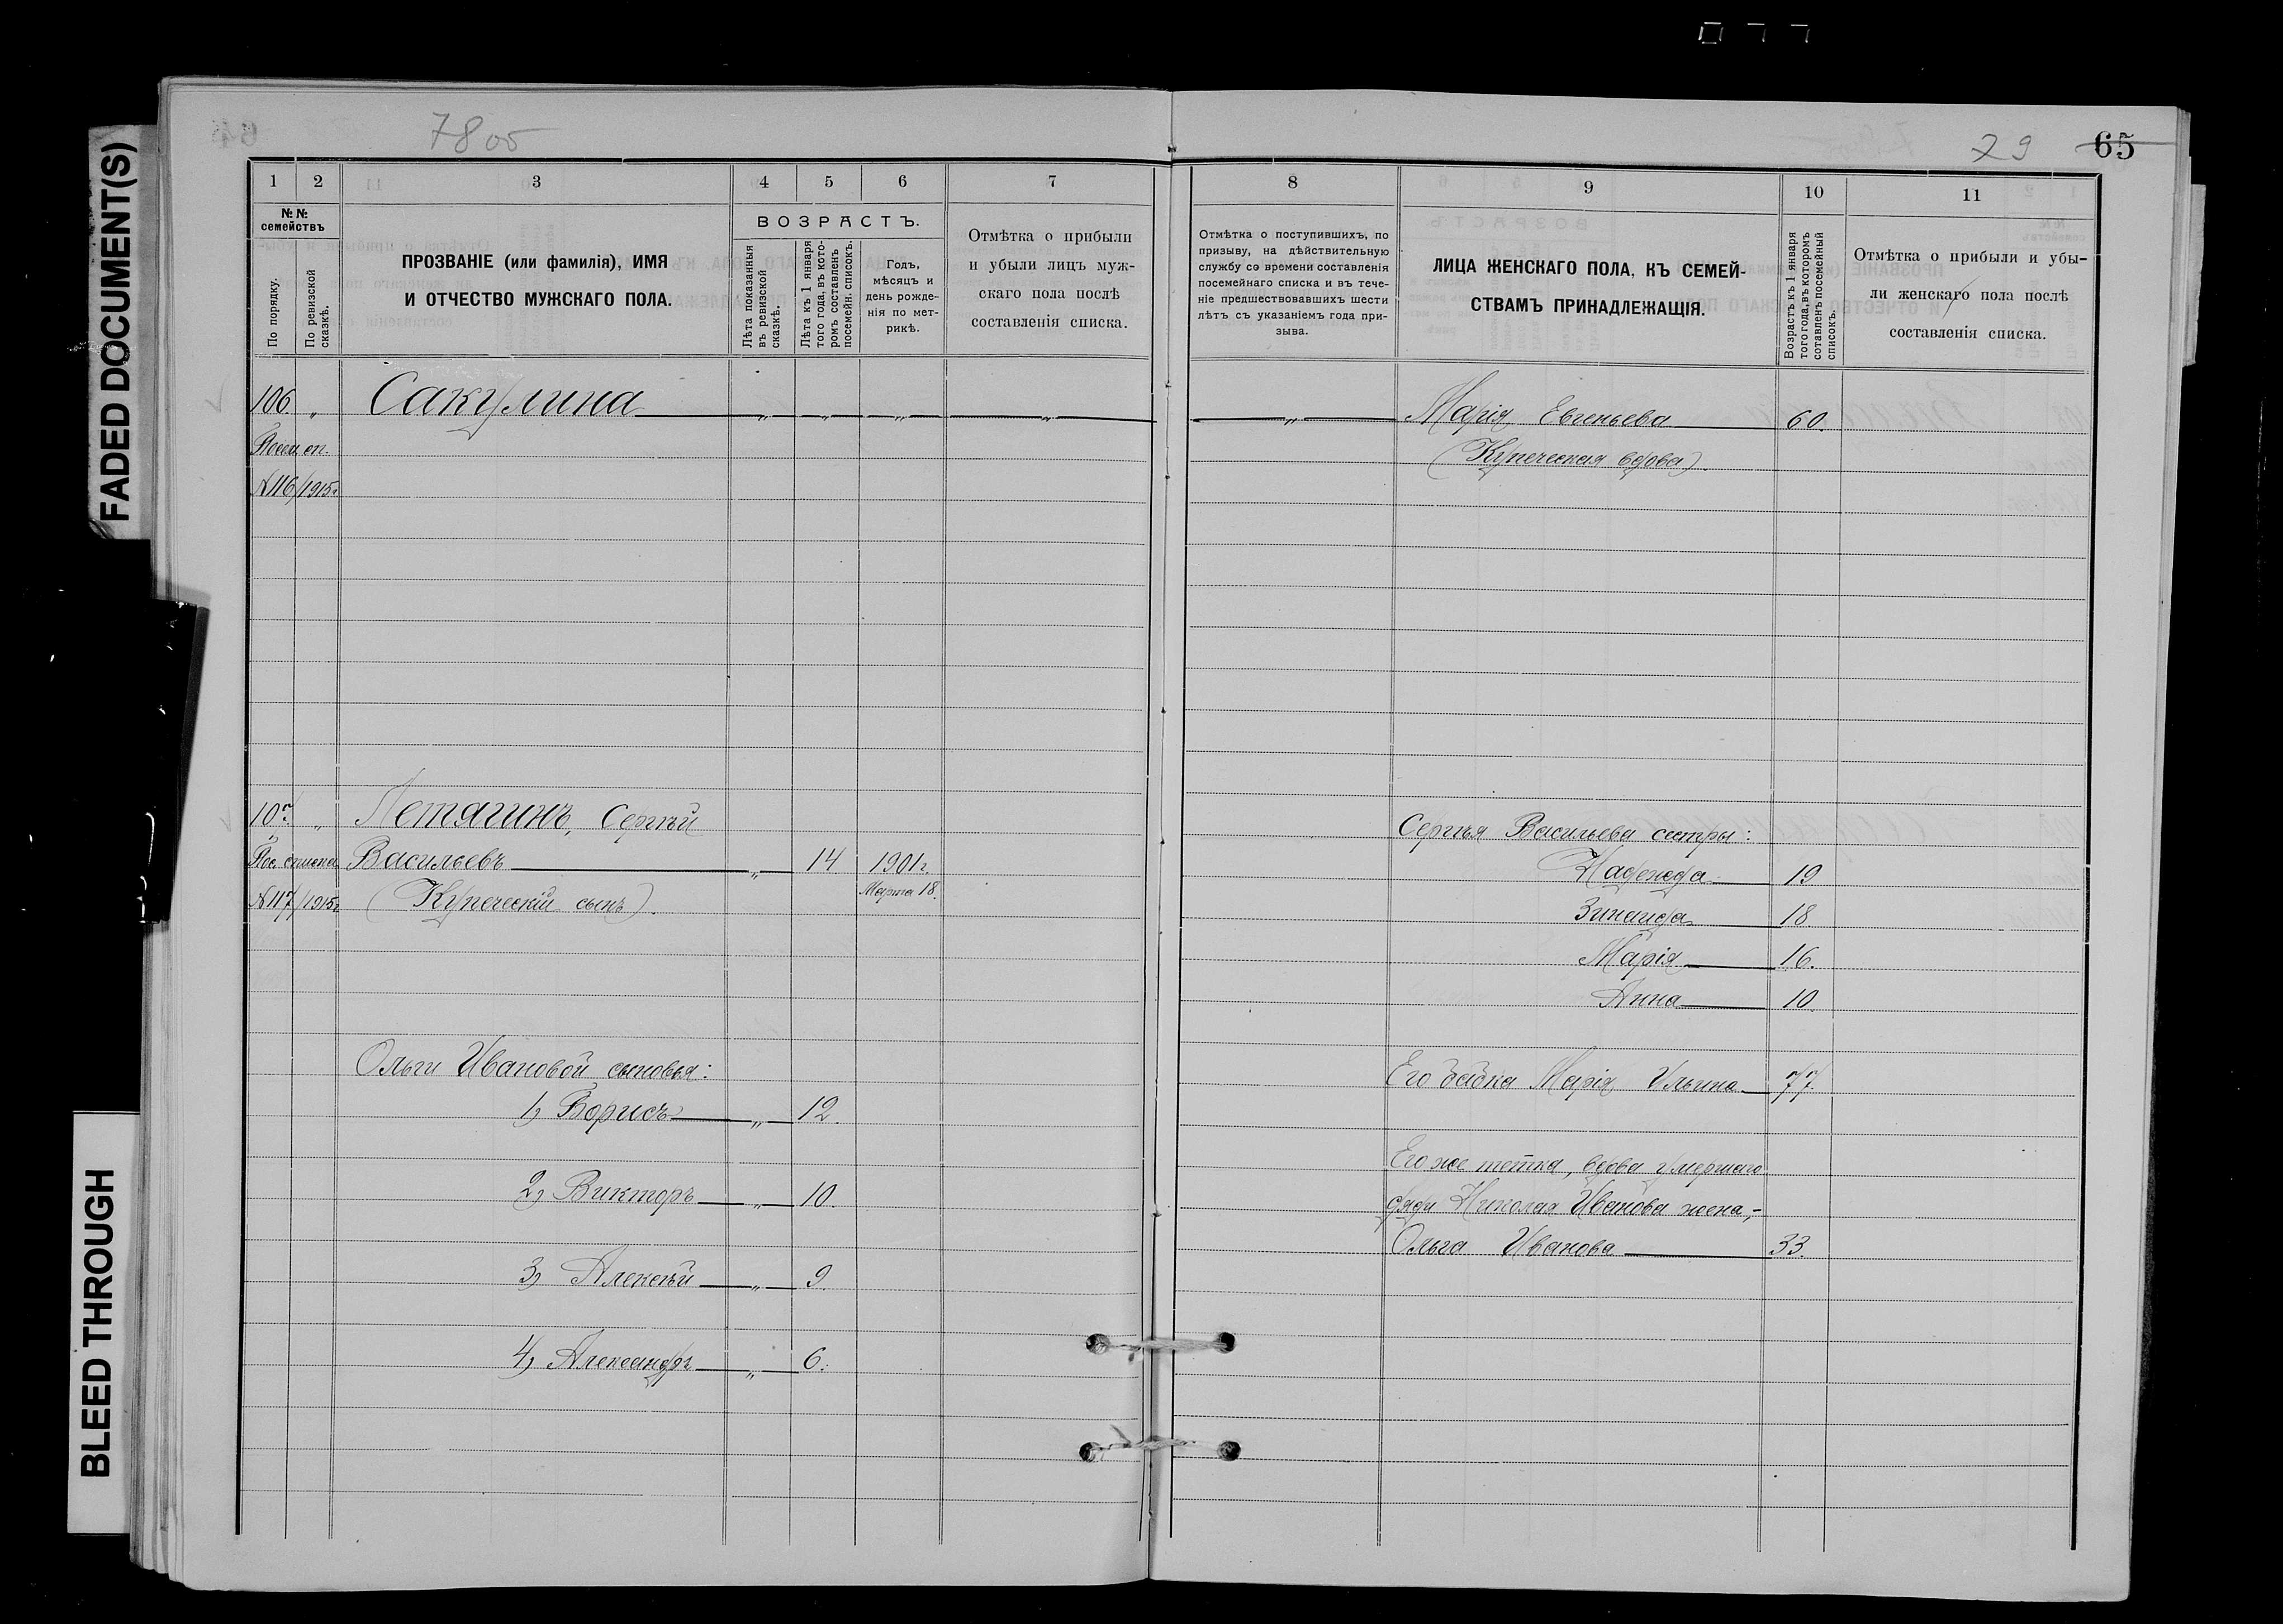 FADED DOCUMENT(S)
BLEED THROUGH
7805
29 65
1 2 3 4 5 6 7
№№ семействъ
По порядку.
По ревизской сказкѣ.
ПРОЗВАНІЕ (или фамилія), ИМЯ
И ОТЧЕСТВО МУЖСКАГО ПОЛА.
ВОЗРАСТЪ.
Лѣта показанныя въ ревизской сказкѣ.
Лѣта къ 1 января того года, въ которомъ составленъ посемейн. списокъ.
Годъ,
мѣсяцъ и
день рожде-
нія по мет-
рикѣ.
Отмѣтка о прибыли
и убыли лицъ муж-
скаго пола послѣ
составленія списка.
106 „ Сакулина „ „ „ „
Посем. сп.
№116/1915г.
107. „ Летягинъ, Сергѣй
Пос. списка Васильевъ „ 14 1901г.
№117/1915г. (Купеческій сынъ). Марта 18.
Ольги Ивановой сыновья:
1) Борисъ „ 12.
2) Викторъ „ 10.
3) Алексѣй „ 9.
4) Александръ „ 6.
8 9 10 11
Отмѣтка о поступившихъ, по
призыву, на дѣйствительную
службу со времени составленія
посемейнаго списка и въ тече-
ніе предшествовавшихъ шести
лѣтъ съ указаніемъ года при-
зыва.
ЛИЦА ЖЕНСКАГО ПОЛА, КЪ СЕМЕЙ-
СТВАМЪ ПРИНАДЛЕЖАЩІЯ.
Возрастъ къ 1 января того года, въ которомъ сотавленъ посемейный списокъ.
Отмѣтка о прибыли и убы-
ли женскаго пола послѣ
составленія списка.
„ Марія Евгеньева 60.
(Купеческая вдова).
Сергѣя Васильева сестры:
Надежда 19
Зинаида 18
Марія 16.
Анна 10
Его бабка Марія Ильина 77.
Его же тетка, вдова умершаго
дяди Николая Иванова жена,-
Ольга Иванова 33.